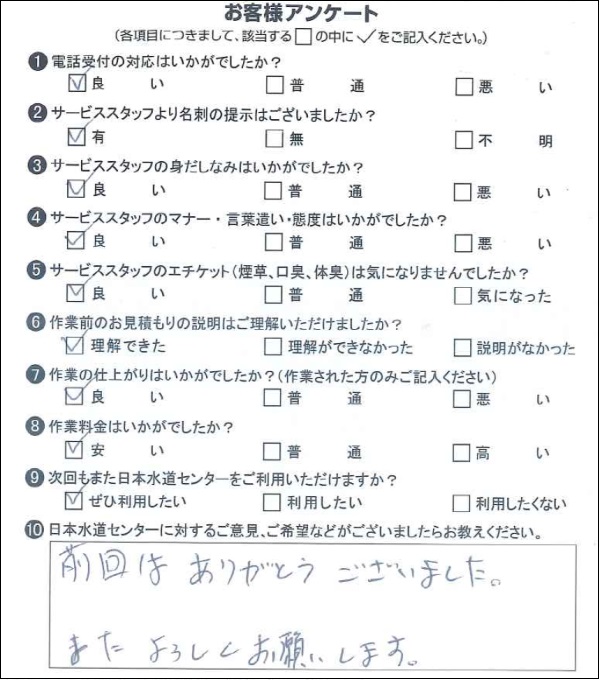 お客様アンケート
(各項目につきまして、該当する□の中に✓をご記入ください。)
❶電話受付の対応はいかがでしたか?
☑良 い □普 通 □悪 い
❷サービススタッフより名刺の提示はございましたか?
☑有 □無 □不 明
❸サービススタッフの身だしなみはいかがでしたか?
☑良 い □普 通 □悪 い
❹サービススタッフのマナー・言葉遣い・態度はいかがでしたか?
☑良 い □普 通 □悪 い
❺サービススタッフのエチケット(煙草、口臭、体臭)は気になりませんでしたか?
☑良 い □普 通 □気になった
❻作業前のお見積もりの説明はご理解いただけましたか?
☑理解できた □理解ができなかった □説明がなかった
❼作業の仕上がりはいかがでしたか?(作業された方のみご記入ください)
☑良 い □普 通 □悪 い
❽作業料金はいかがでしたか?
☑安 い □普 通 □高 い
❾次回もまた日本水道センターをご利用いただけますか?
☑ぜひ利用したい □利用したい □利用したくない
❿日本水道センターに対するご意見、ご希望などがございましたらお教えください。
前回は ありがとう ございました。
また よろしく お願いします。